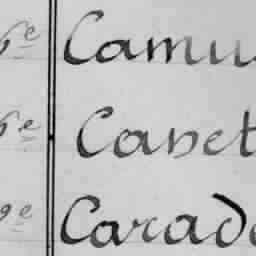 6e Camu
6e Canet
9e Carade